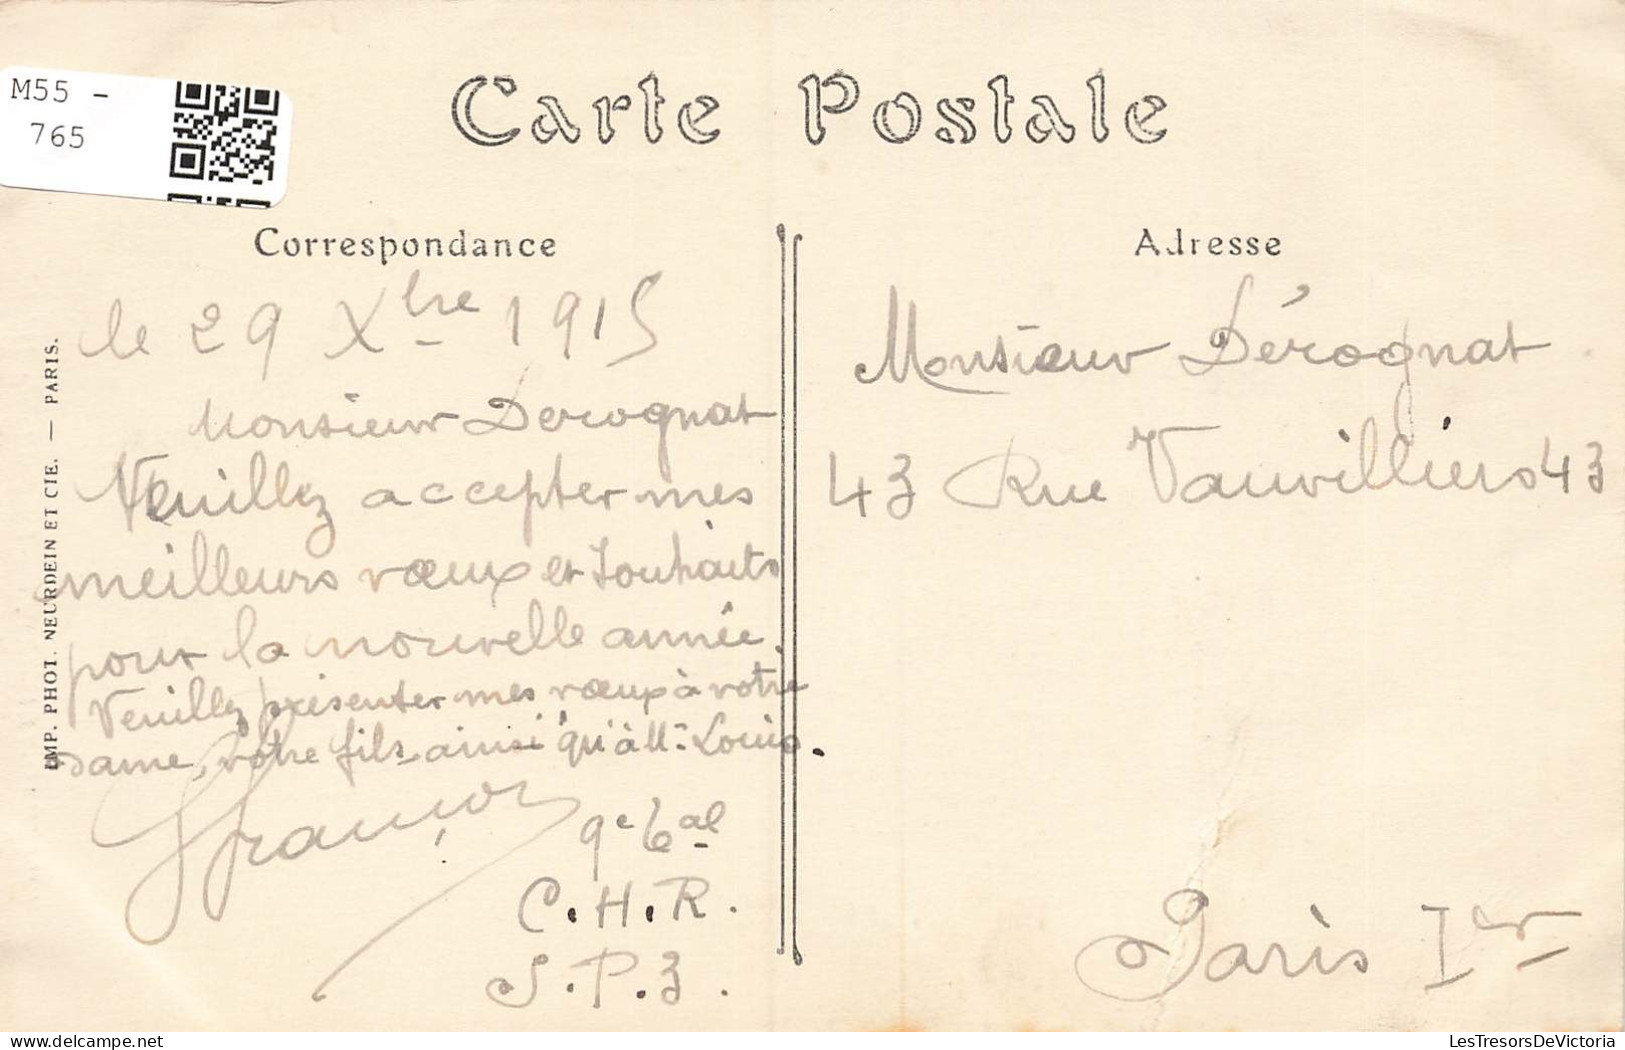 M55 -
765
Carte Postale
Correspondance
le 29 Xbre 1915
Monsieur Derognat
Veuillez accepter mes
meilleurs vœux et souhaits
pour la nouvelle année.
Veuillez présenter mes vœux à votre
dame, votre fils ainsi qu'à Mr Louis.
François
9e bal
C.H.R.
S.P.3.
IMP. PHOT. NEURDEIN ET CIE. — PARIS.
Adresse
Monsieur Dérognat
43 Rue Vauvilliers 43
Paris Ier
delcampe.net
LesTresorsDeVictoria